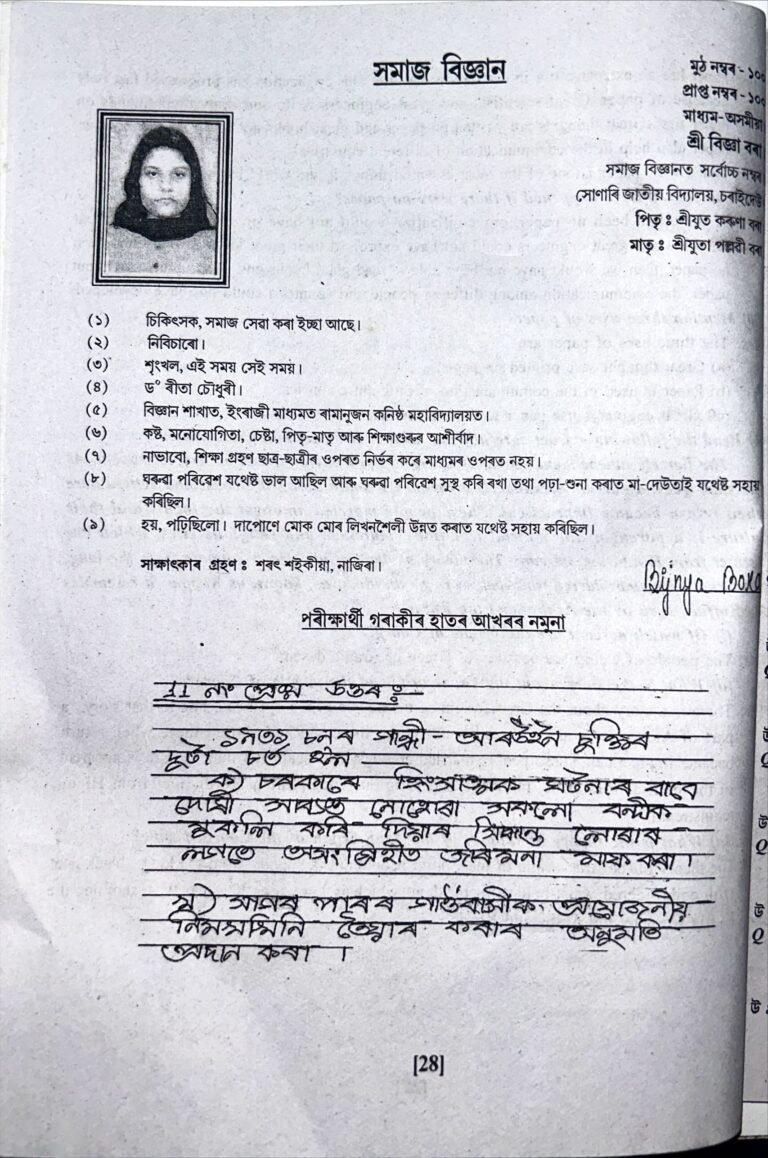 সমাজ বিজ্ঞান
মুঠ নম্বৰ - ১০০
প্ৰাপ্ত নম্বৰ - ১০০
মাধ্যম-অসমীয়া
শ্ৰী বিজ্ঞা বৰা
সমাজ বিজ্ঞানত সৰ্বোচ্চ নম্বৰ
সোণাৰি জাতীয় বিদ্যালয়, চৰাইদেউ
পিতৃ ঃ শ্ৰীযুত কৰুণা বৰা
মাতৃ ঃ শ্ৰীযুতা পল্লৱী বৰা
(১) চিকিৎসক, সমাজ সেৱা কৰা ইচ্ছা আছে।
(২) নিবিচাৰো।
(৩) শৃংখল, এই সময় সেই সময়।
(৪) ড° ৰীতা চৌধুৰী।
(৫) বিজ্ঞান শাখাত, ইংৰাজী মাধ্যমত ৰামানুজন কনিষ্ঠ মহাবিদ্যালয়ত।
(৬) কষ্ট, মনোযোগিতা, চেষ্টা, পিতৃ-মাতৃ আৰু শিক্ষাগুৰুৰ আশীৰ্বাদ।
(৭) নাভাবো, শিক্ষা গ্ৰহণ ছাত্ৰ-ছাত্ৰীৰ ওপৰত নিৰ্ভৰ কৰে মাধ্যমৰ ওপৰত নহয়।
(৮) ঘৰুৱা পৰিৱেশ যথেষ্ট ভাল আছিল আৰু ঘৰুৱা পৰিৱেশ সুস্থ কৰি ৰখা তথা পঢ়া-শুনা কৰাত মা-দেউতাই যথেষ্ট সহায়
কৰিছিল।
(৯) হয়, পঢ়িছিলো। দাপোণে মোক মোৰ লিখনশৈলী উন্নত কৰাত যথেষ্ট সহায় কৰিছিল।
সাক্ষাৎকাৰ গ্ৰহণ ঃ শৰৎ শইকীয়া, নাজিৰা।
Bijnya Bora
পৰীক্ষাৰ্থী গৰাকীৰ হাতৰ আখৰৰ নমুনা
11 নং প্ৰশ্নৰ উত্তৰ ঃ
১৯৩১ চনৰ গান্ধী - আৰউইন চুক্তিৰ
দুটা চৰ্ত হ'ল
ক) চৰকাৰে হিংসাত্মক ঘটনাৰ বাবে
দোষী সাব্যস্ত নোহোৱা সকলো বন্দীক
মুকলি কৰি দিয়াৰ সিদ্ধান্ত লোৱাৰ
লগতে অসংগৃহীত জৰিমনা মাফ কৰা।
খ) সাগৰ পাৰৰ গাওঁবাসীক প্ৰয়োজনীয়
নিমখখিনি তৈয়াৰ কৰাৰ অনুমতি
প্ৰদান কৰা।
[28]